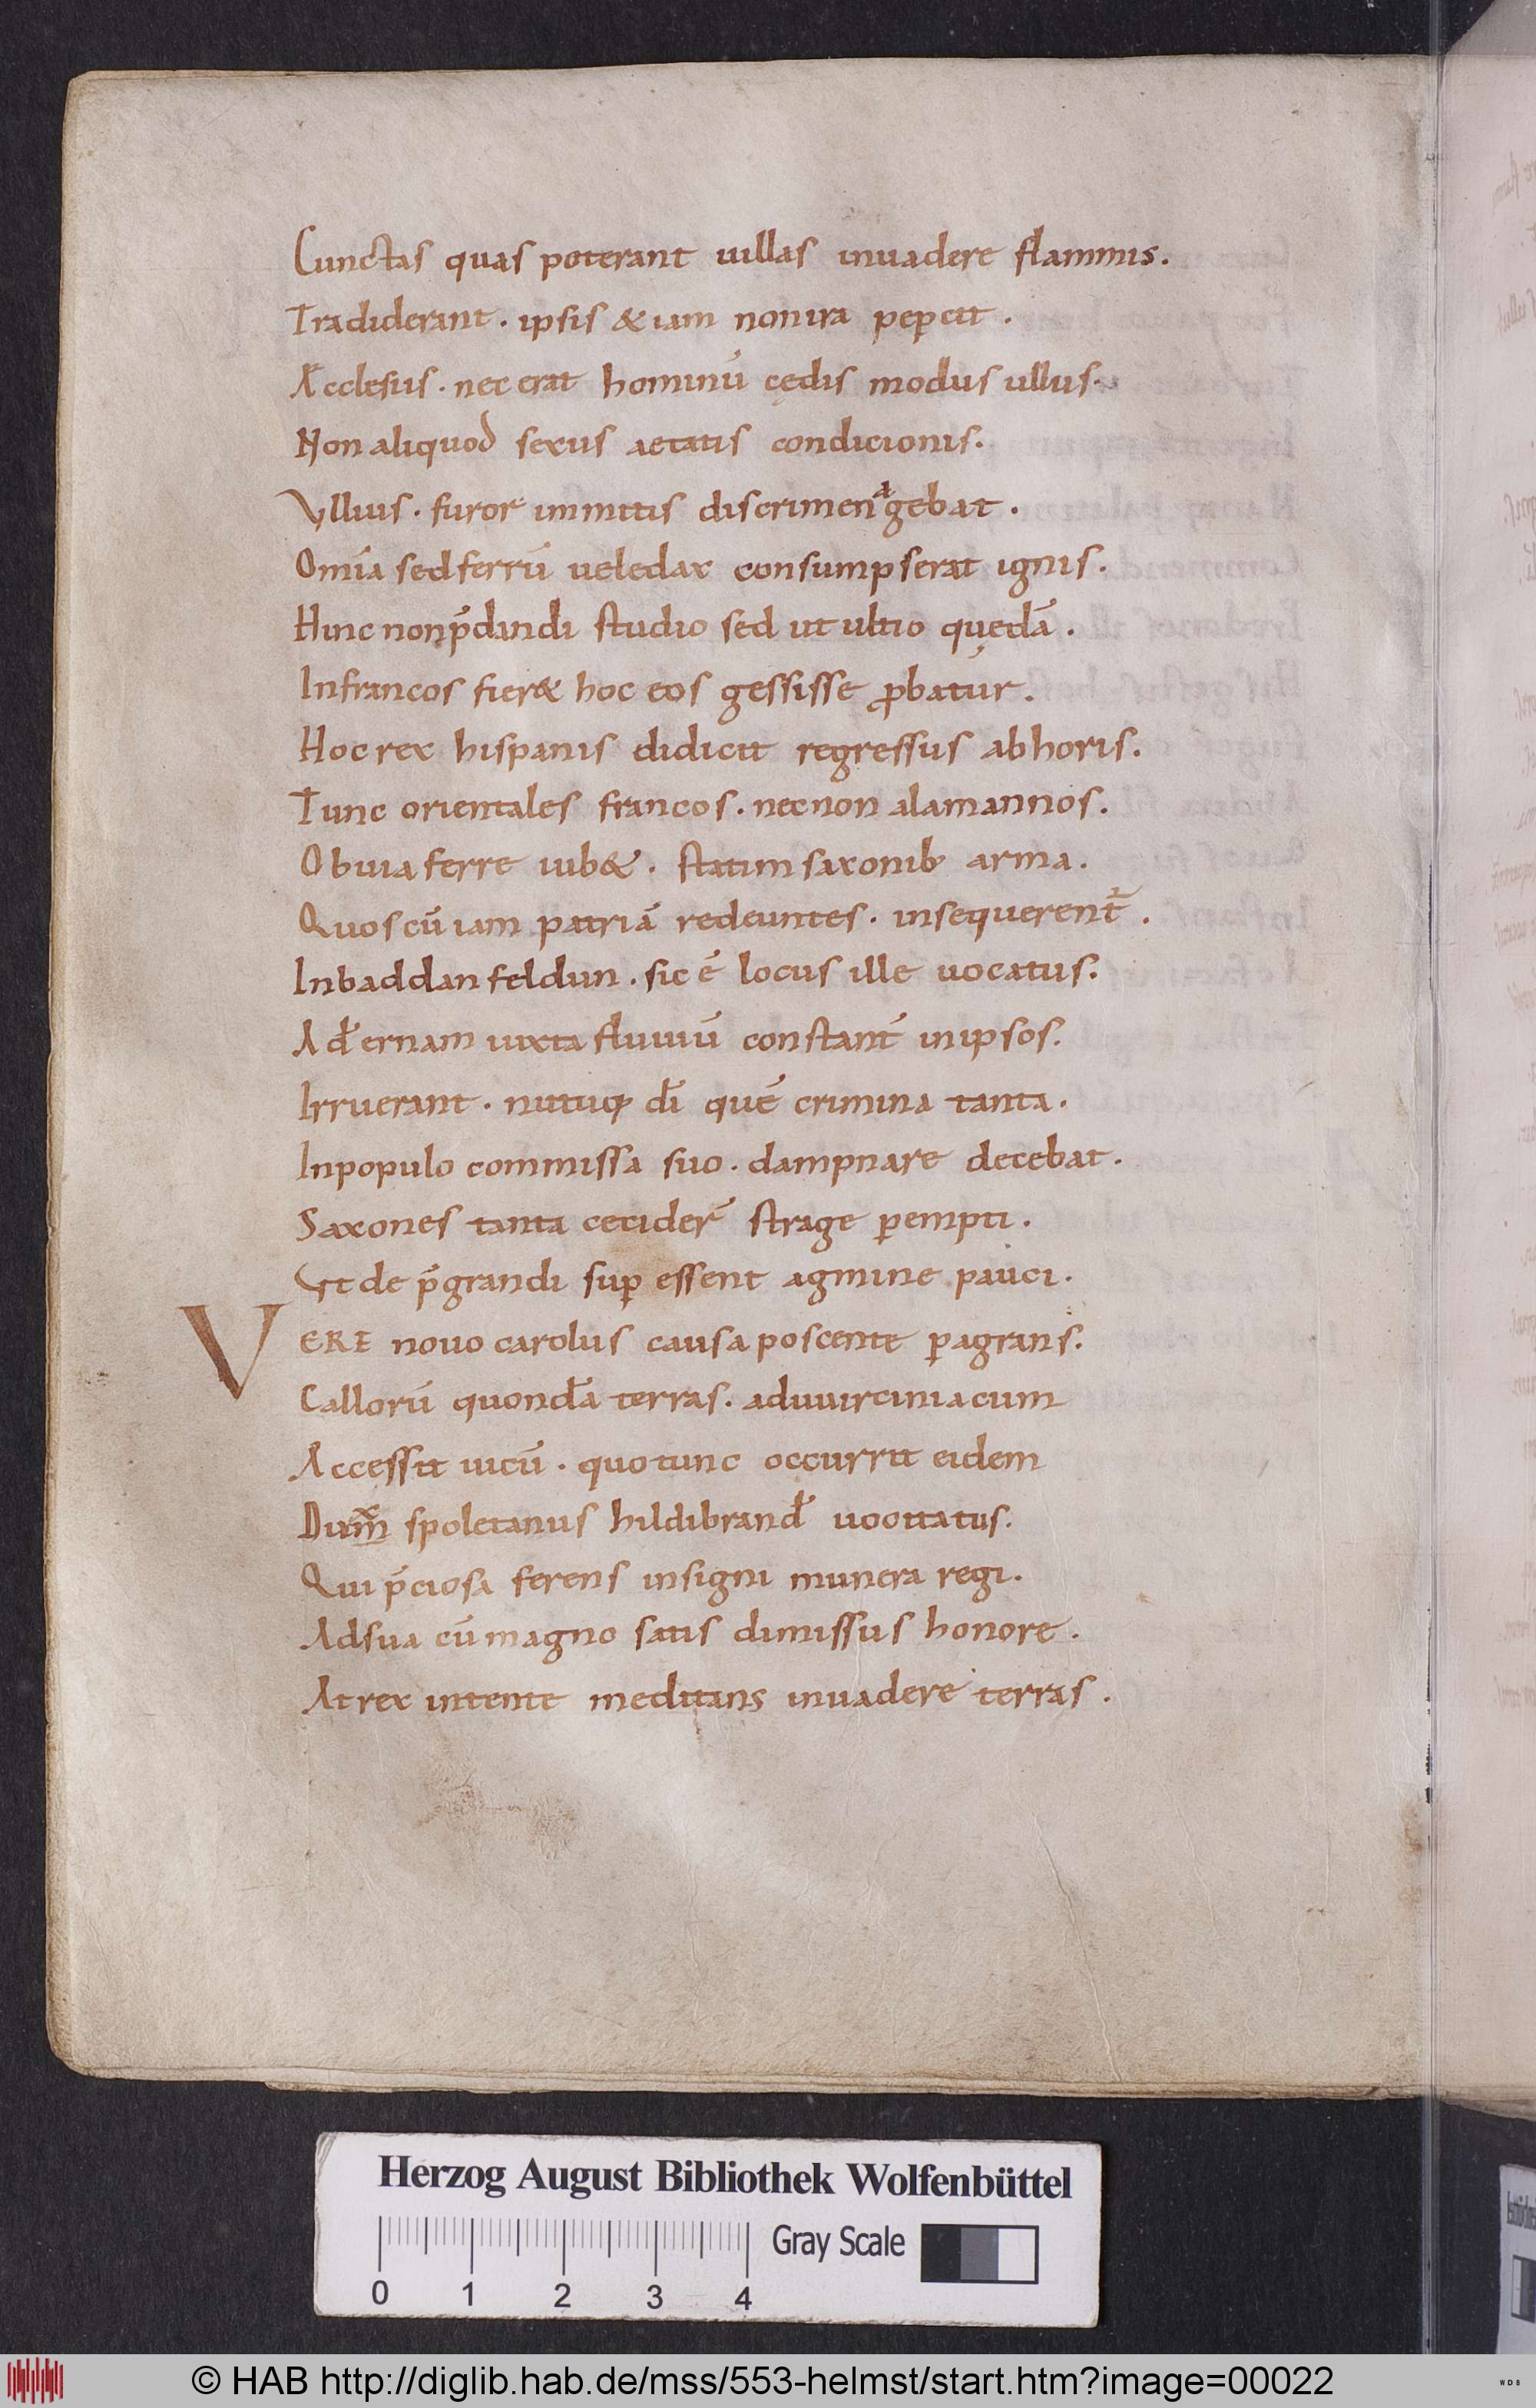 Cunctas quas poterant uillas inuadere flammis.
Tradiderant. ipsis & iam non ira pepcit.
Aecclesiis. nec erat hominū cędis modus ullus.
Non aliquod sexus aetatis condicionis.
Vllius. furor immitis discrimen agebat.
Omīa sed ferrū uel edax consumpserat ignis.
Hinc non p̄dandi studio sed ut ultio quędā.
In francos fier& hoc eos gessisse ꝓbatur.
Hoc rex hispanis didicit regressus ab horis.
Tunc orientales francos. nec non alamannos.
Obuia ferre iub&. statim saxonib; arma.
Quos cū iam patriā redeuntes. insequerent̄.
In baddanfeldun. sic ē locus ille uocatus.
Ad̄ernam iuxta fluuiū constant̄ in ipsos.
Irruerant. nutuq; dī quē crimina tanta.
In populo commissa suo. dampnare decebat.
Saxones tanta cecider̄ strage ꝑempti.
Vt de p̄grandi suꝑessent agmine pauci.
VERE nouo carolus causa poscente ꝑagrans.
Gallorū quond̄a terras. ad uuirciniacum
Accessit uicū. quo tunc occurrit eidem
Dux spoletanus hildibrand̄ uocitatus.
Qui p̄ciosa ferens insigni munera regi.
Ad sua cū magno satis dimissus honore.
At rex intente meditans inuadere terras.
Herzog August Bibliothek Wolfenbüttel
0 1 2 3 4 Gray Scale
© HAB http://diglib.hab.de/mss/553-helmst/start.htm?image=00022
WDB